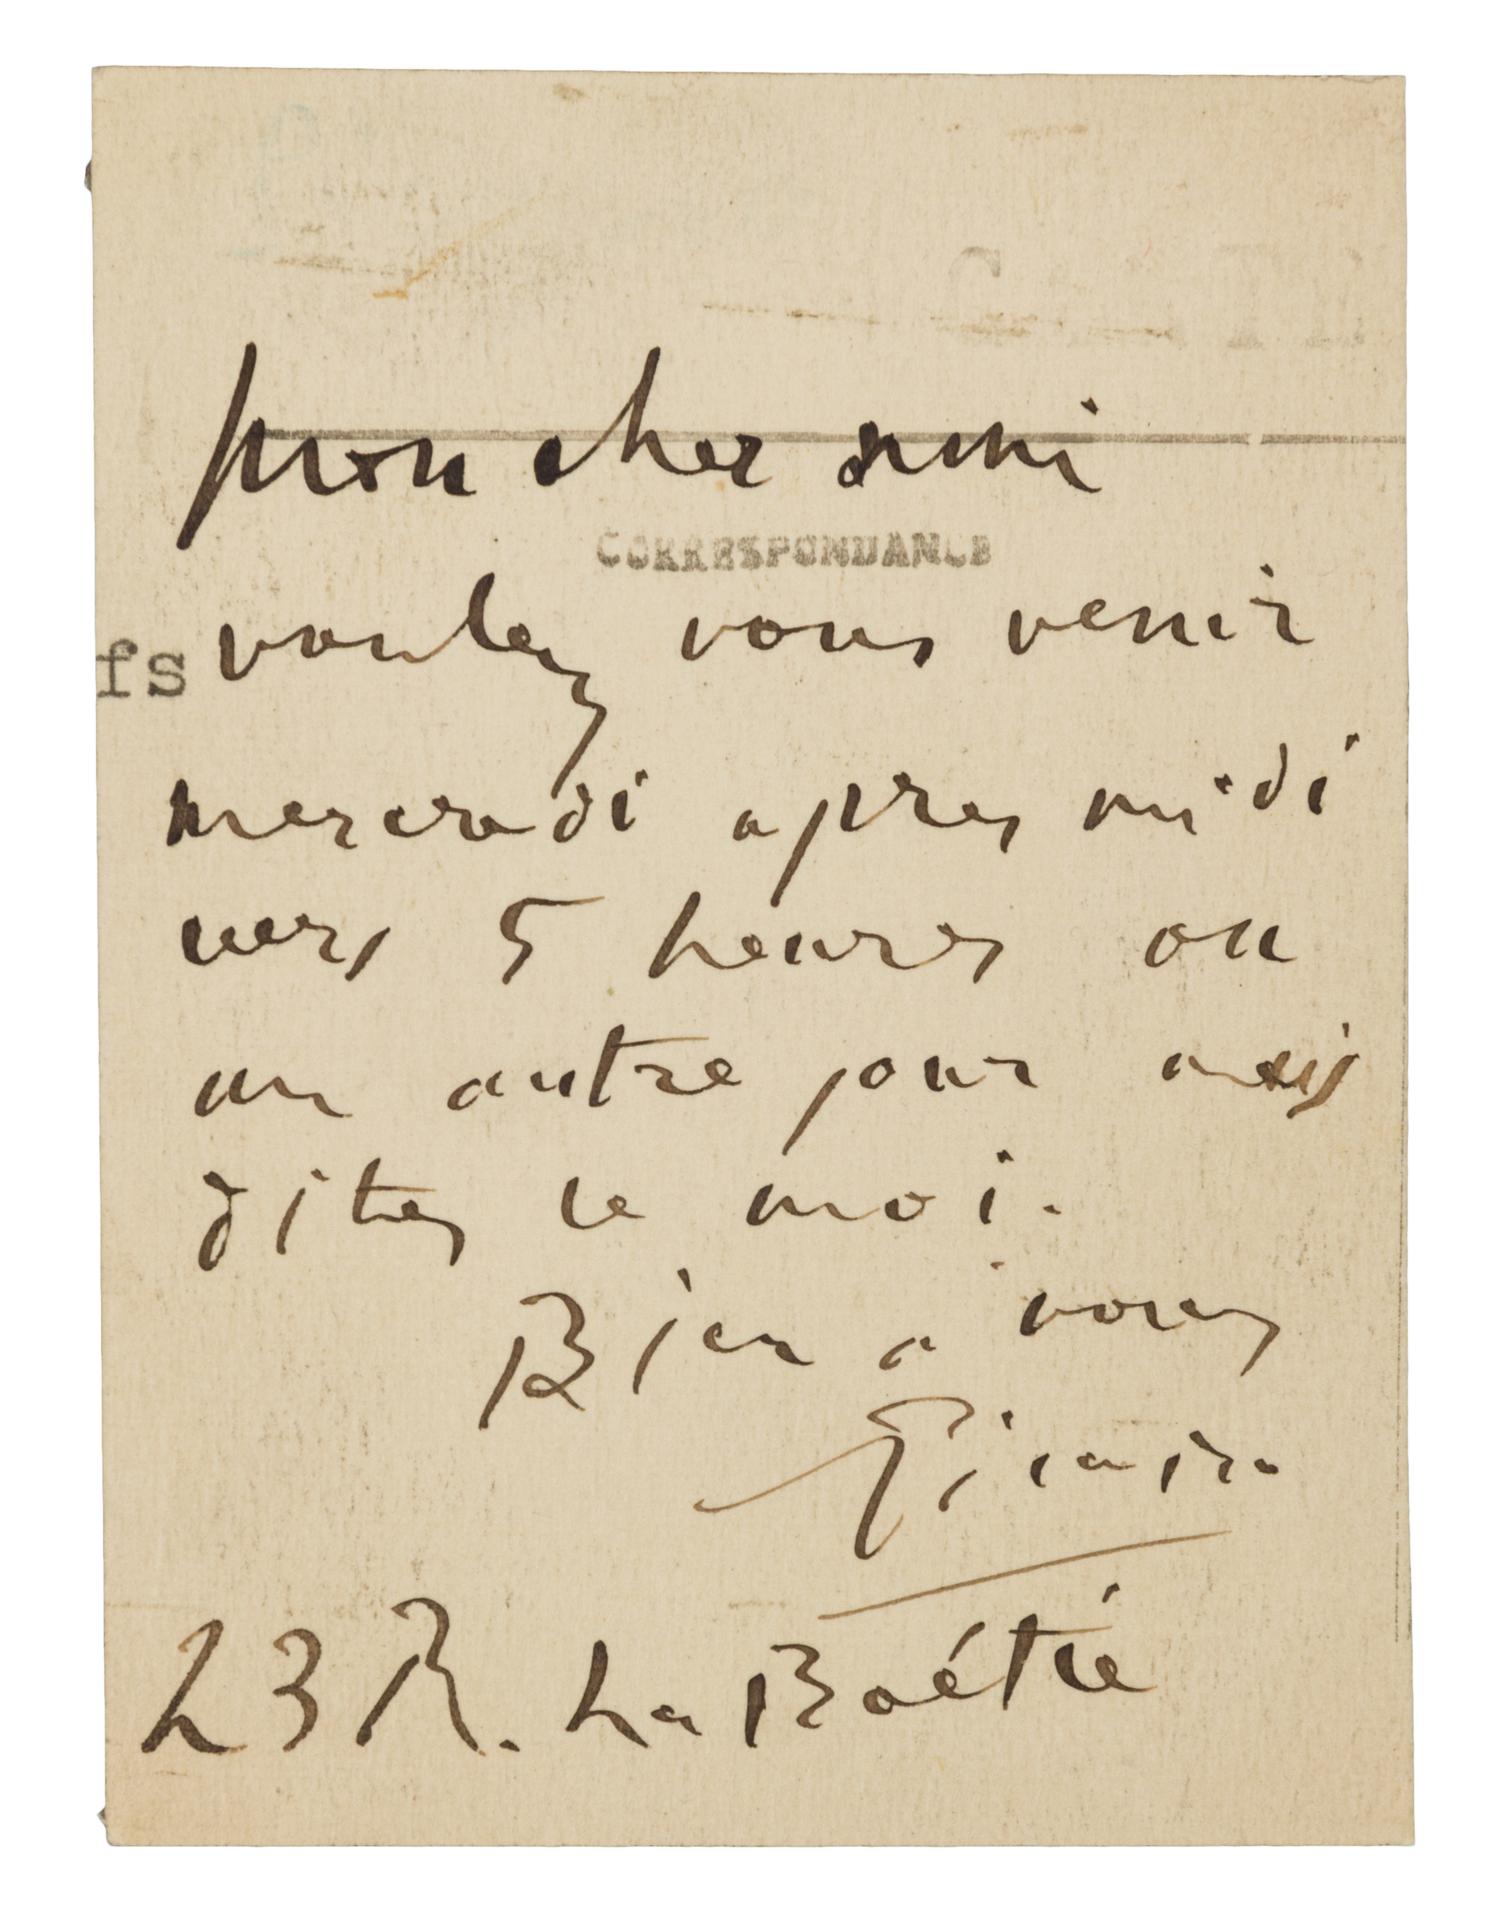 Mon cher ami
CORRESPONDANCE
fs
voulez vous venir
mercredi apres midi
vers 5 heures ou
un autre jour mais
dites le moi.
Bien a vous
Picasso
23 R. La Boétie